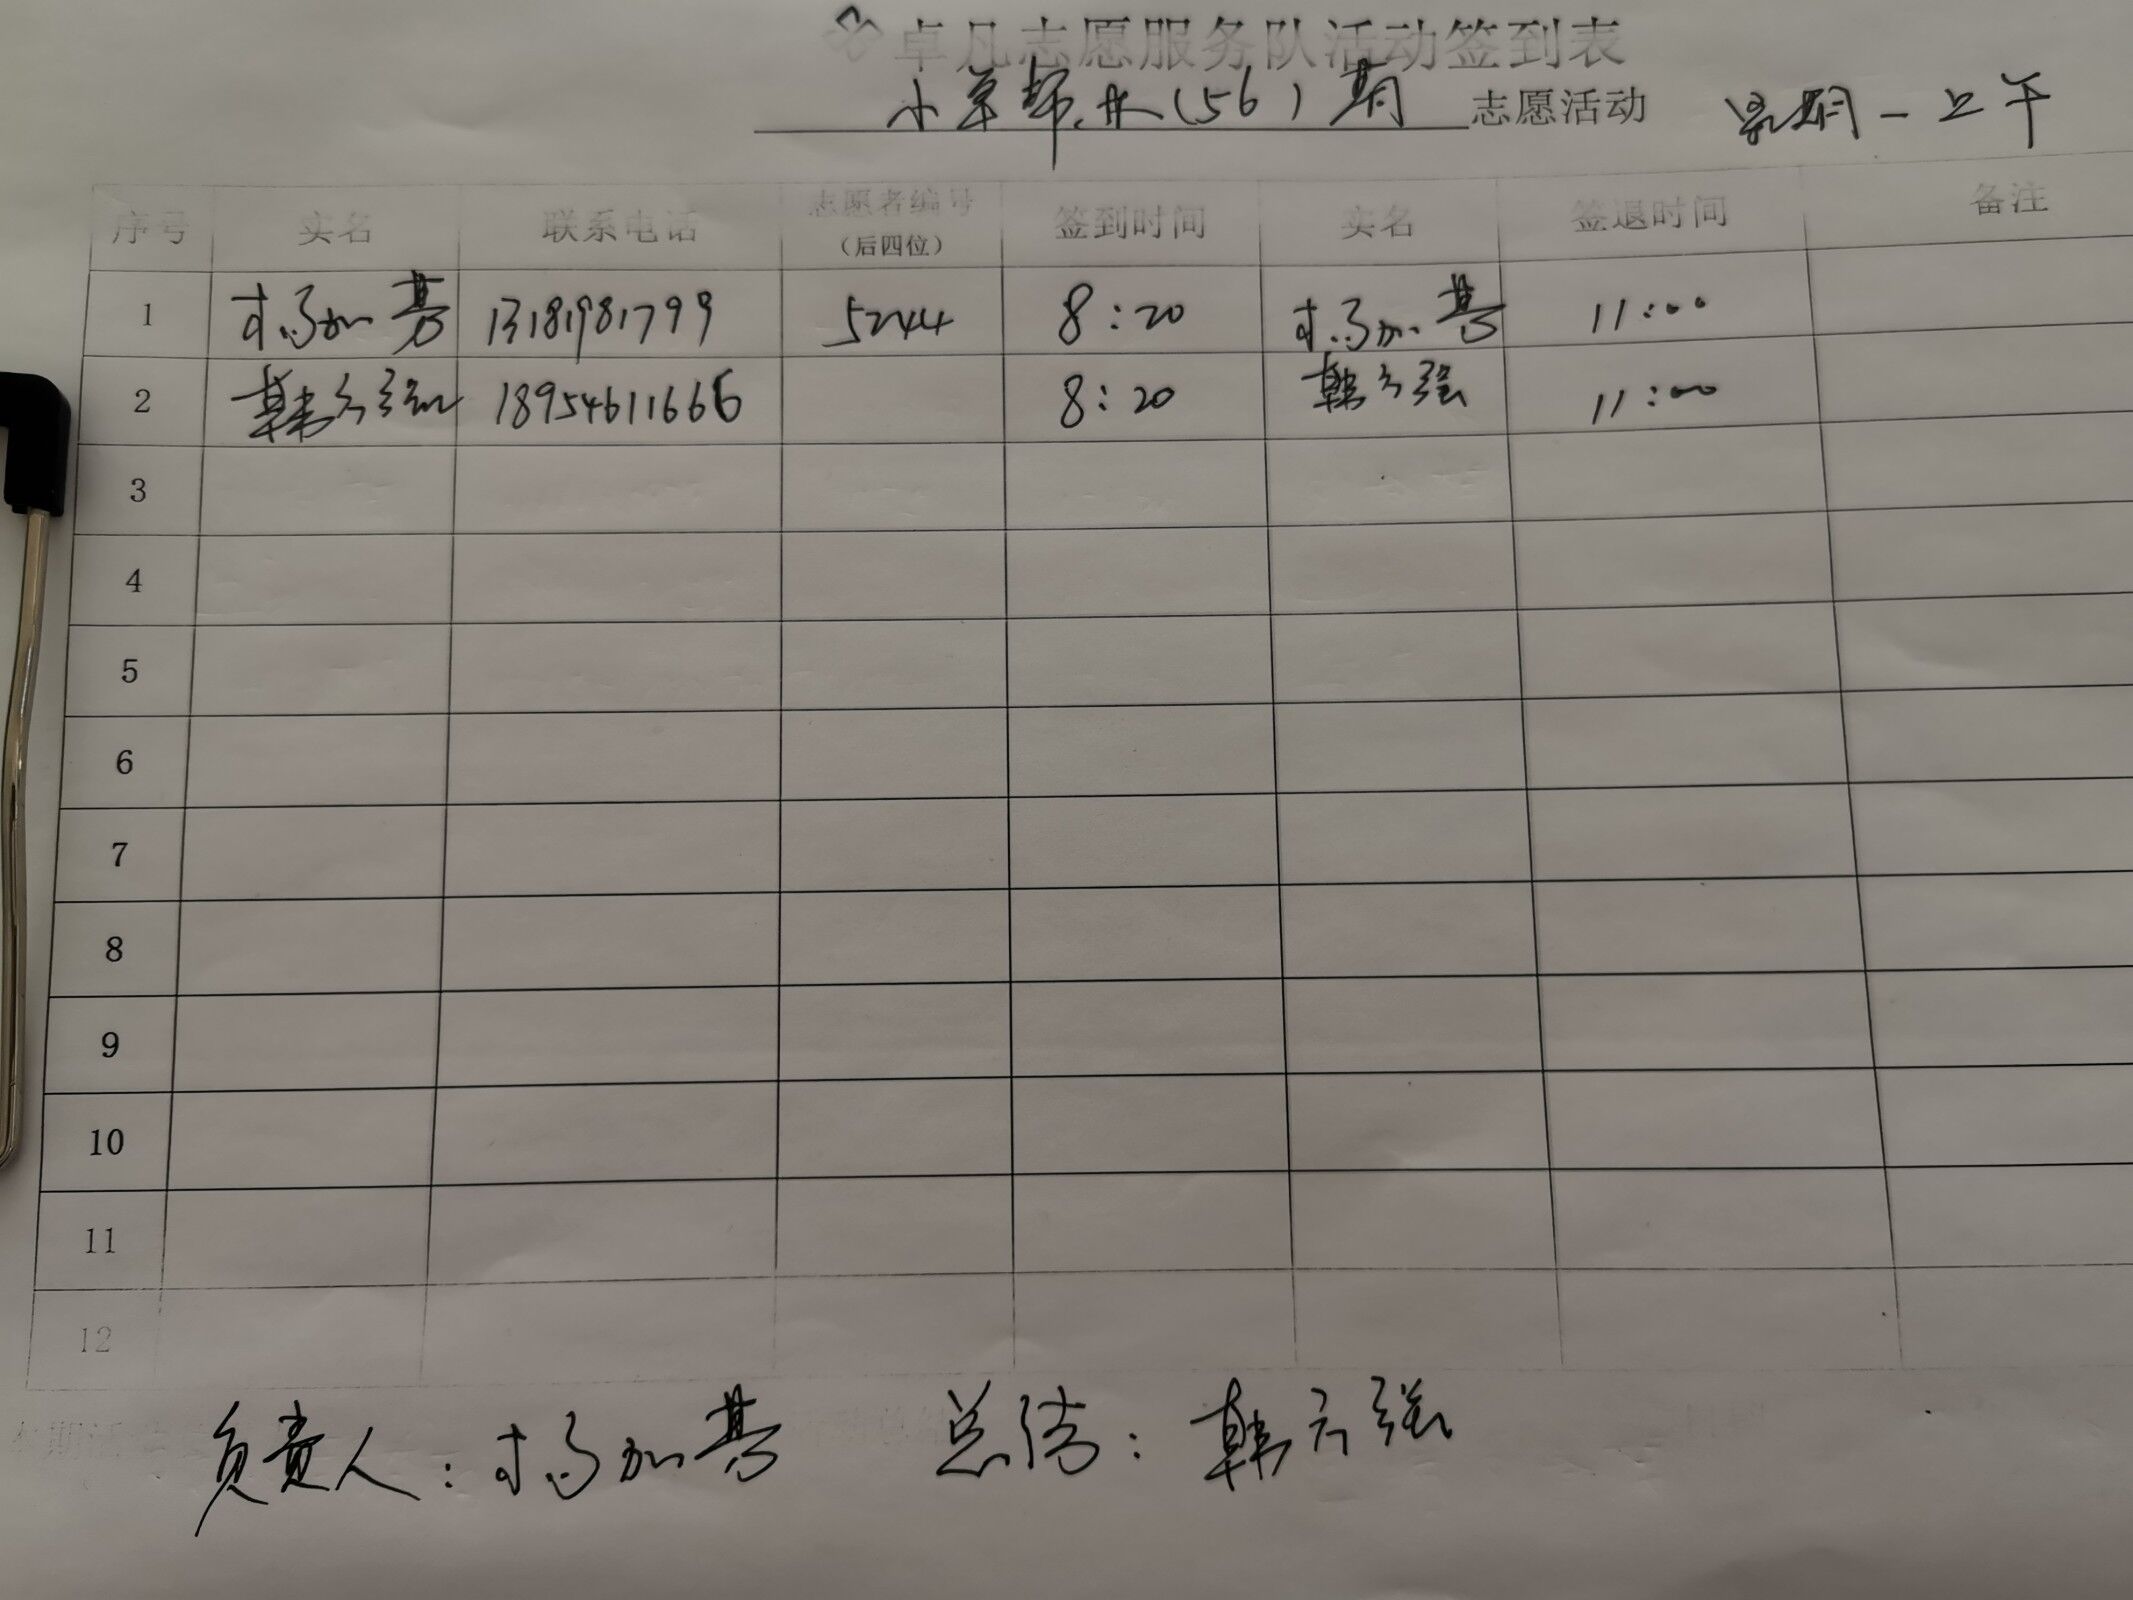 卓凡志愿服务队活动签到表
小草帮扶(56)期志愿活动 星期一上午
序号 实名 联系电话 志愿者编号（后四位） 签到时间 实名 签退时间 备注
1 杨加基 13181981799 5244 8:20 杨加基 11:00
2 韩立强 18954611666 8:20 韩立强 11:00
3
4
5
6
7
8
9
10
11
12
负责人：杨加基 总结：韩立强